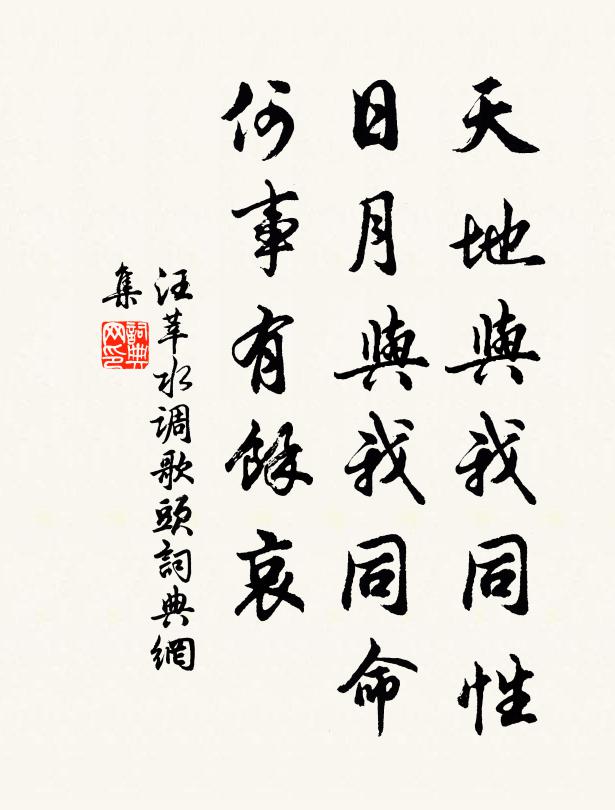 天地與我同性
日月與我同命
何事有餘哀
汪莘水调歌頭詞典網
集
詞典網印